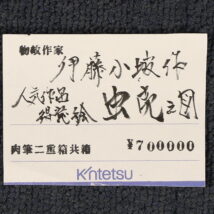 物故作家
伊藤小坡作
人気作品
絵
虫売之図
肉筆二重箱共箱
¥700000
Kintetsu